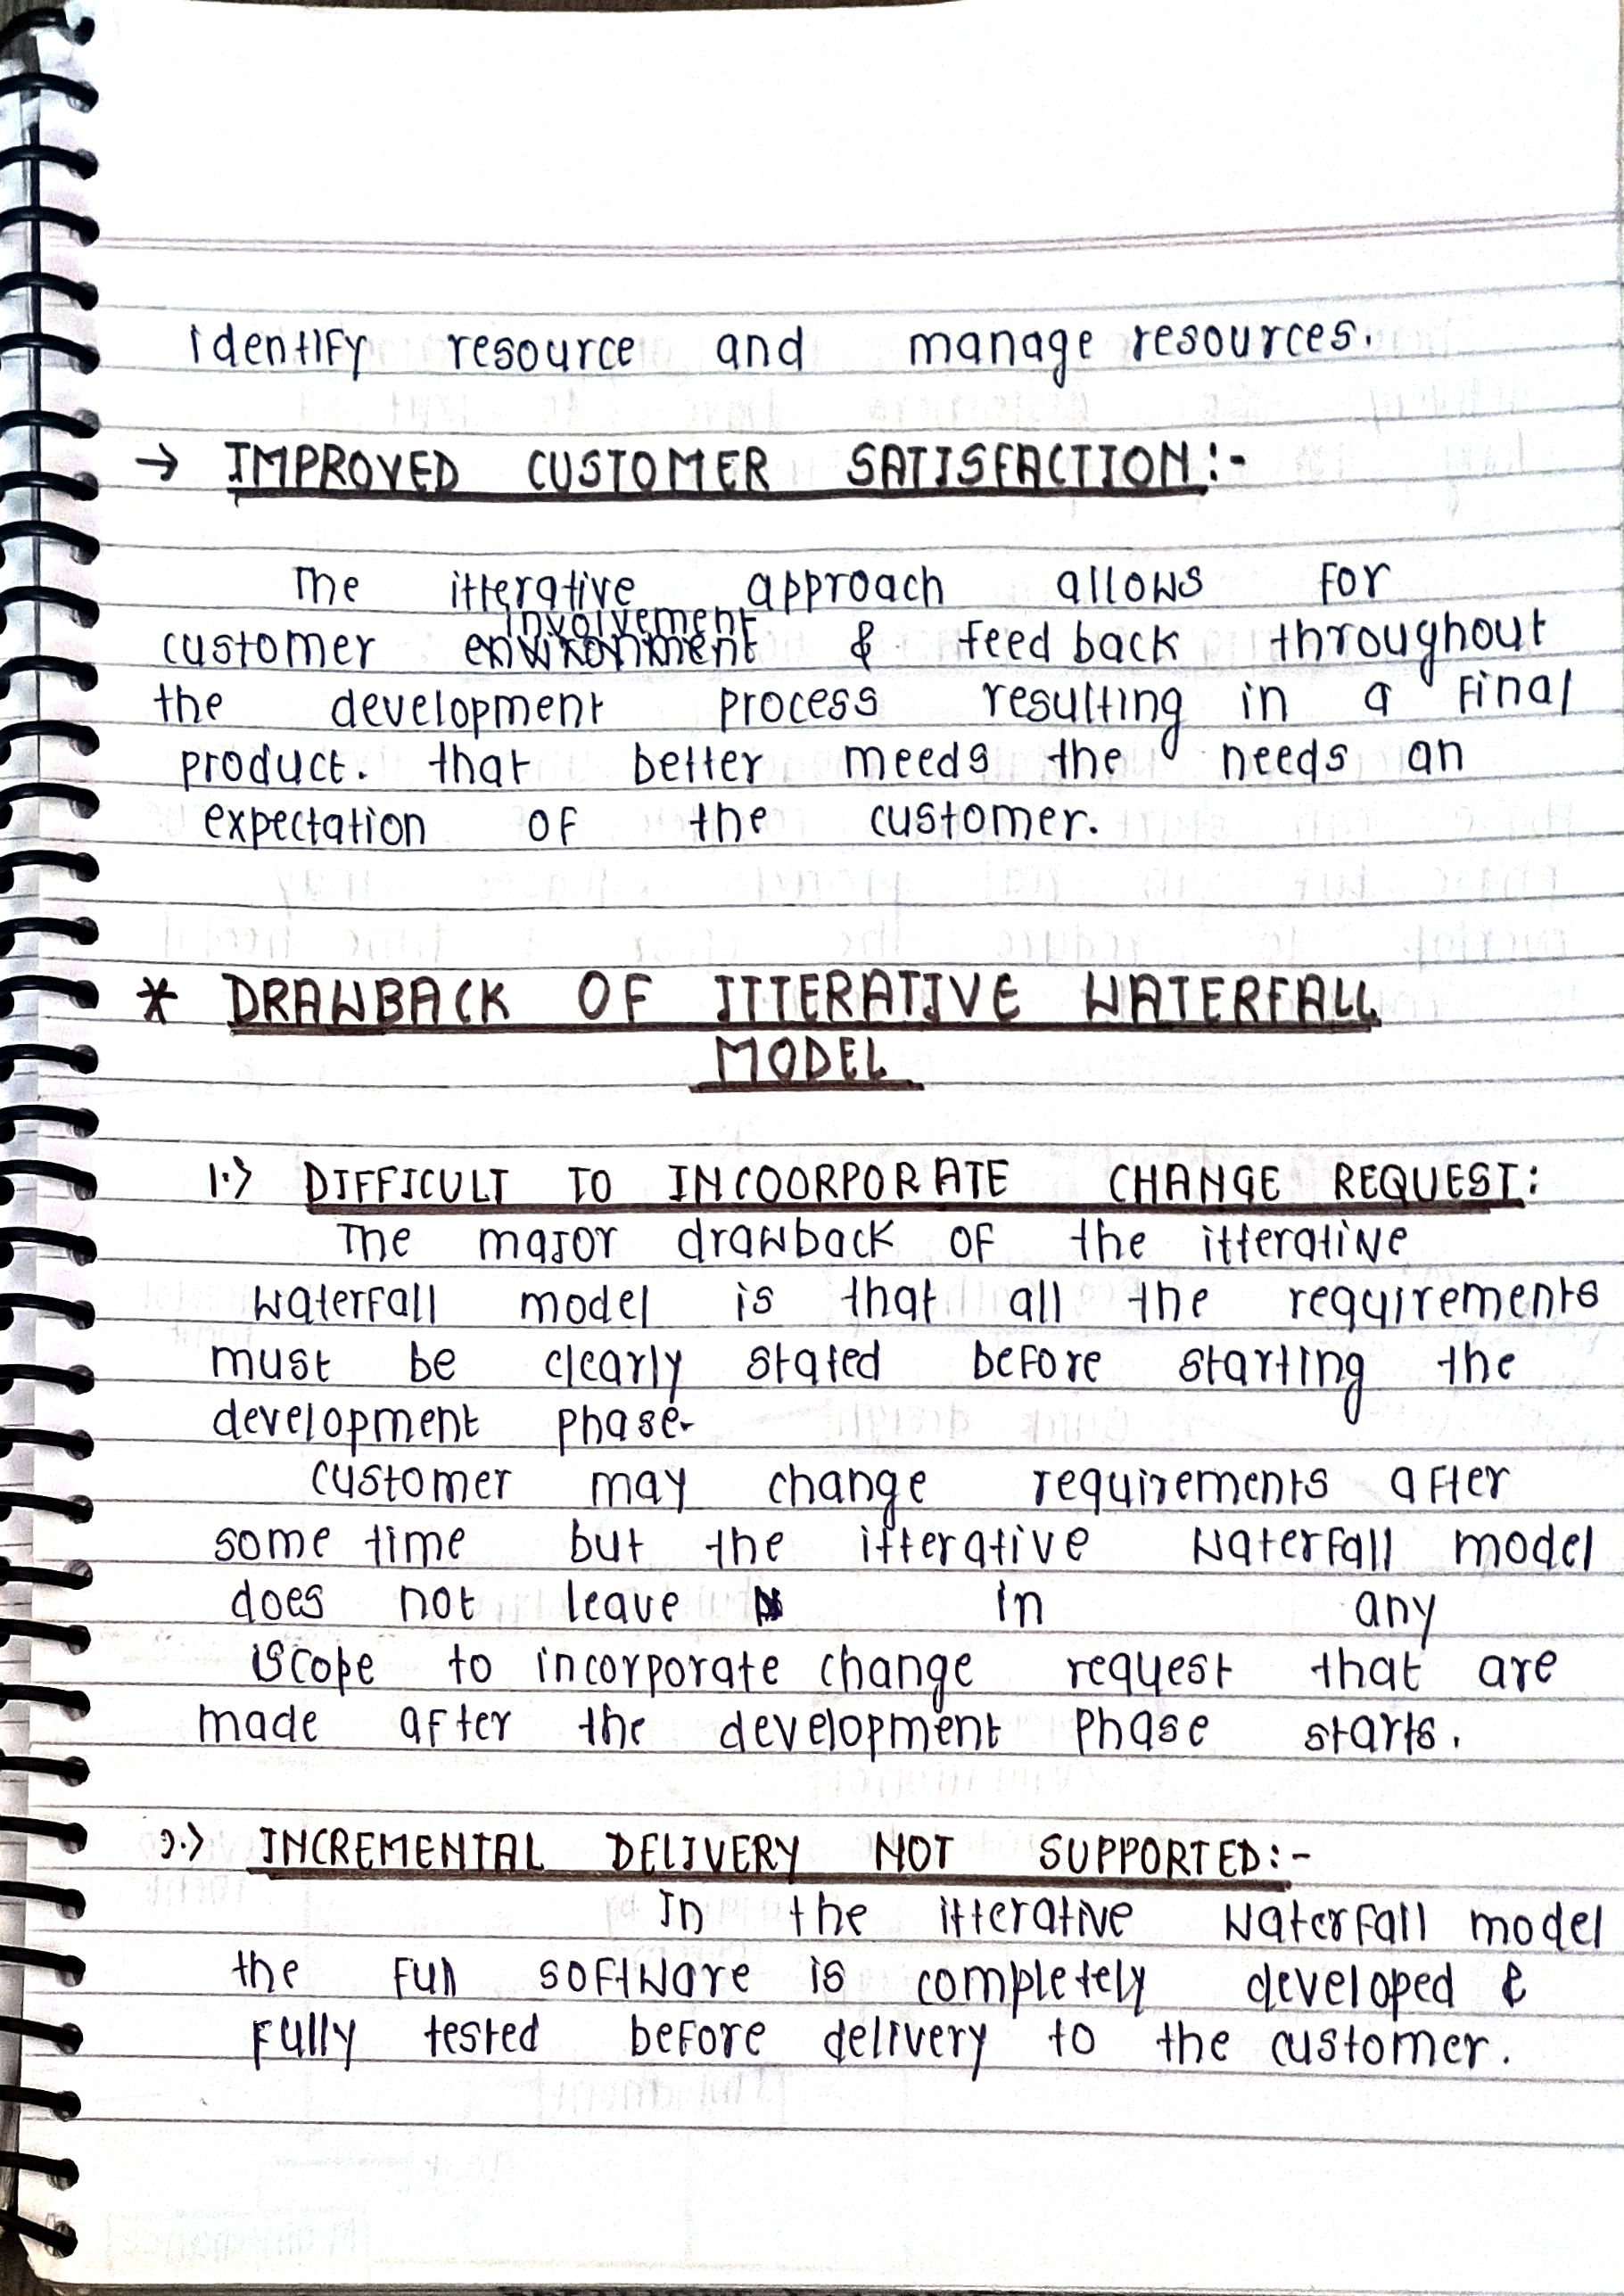 identify resource and manage resources.
→ IMPROVED CUSTOMER SATISFACTION:-
The itterative approach allows for
involvement
customer environment & feed back throughout
the development process resulting in a final
product. that better meeds the needs an
expectation of the customer.
* DRAWBACK OF ITTERATIVE WATERFALL
MODEL
1.> DIFFICULT TO INCOORPORATE CHANGE REQUEST:
The major drawback of the itterative
waterfall model is that all the requirements
must be clearly stated before starting the
development phase.
customer may change requirements after
some time but the itterative waterfall model
does not leave in any
scope to incorporate change request that are
made after the development phase starts.
2.> INCREMENTAL DELIVERY NOT SUPPORTED:-
In the itterative waterfall model
the full software is completely developed &
fully tested before delivery to the customer.